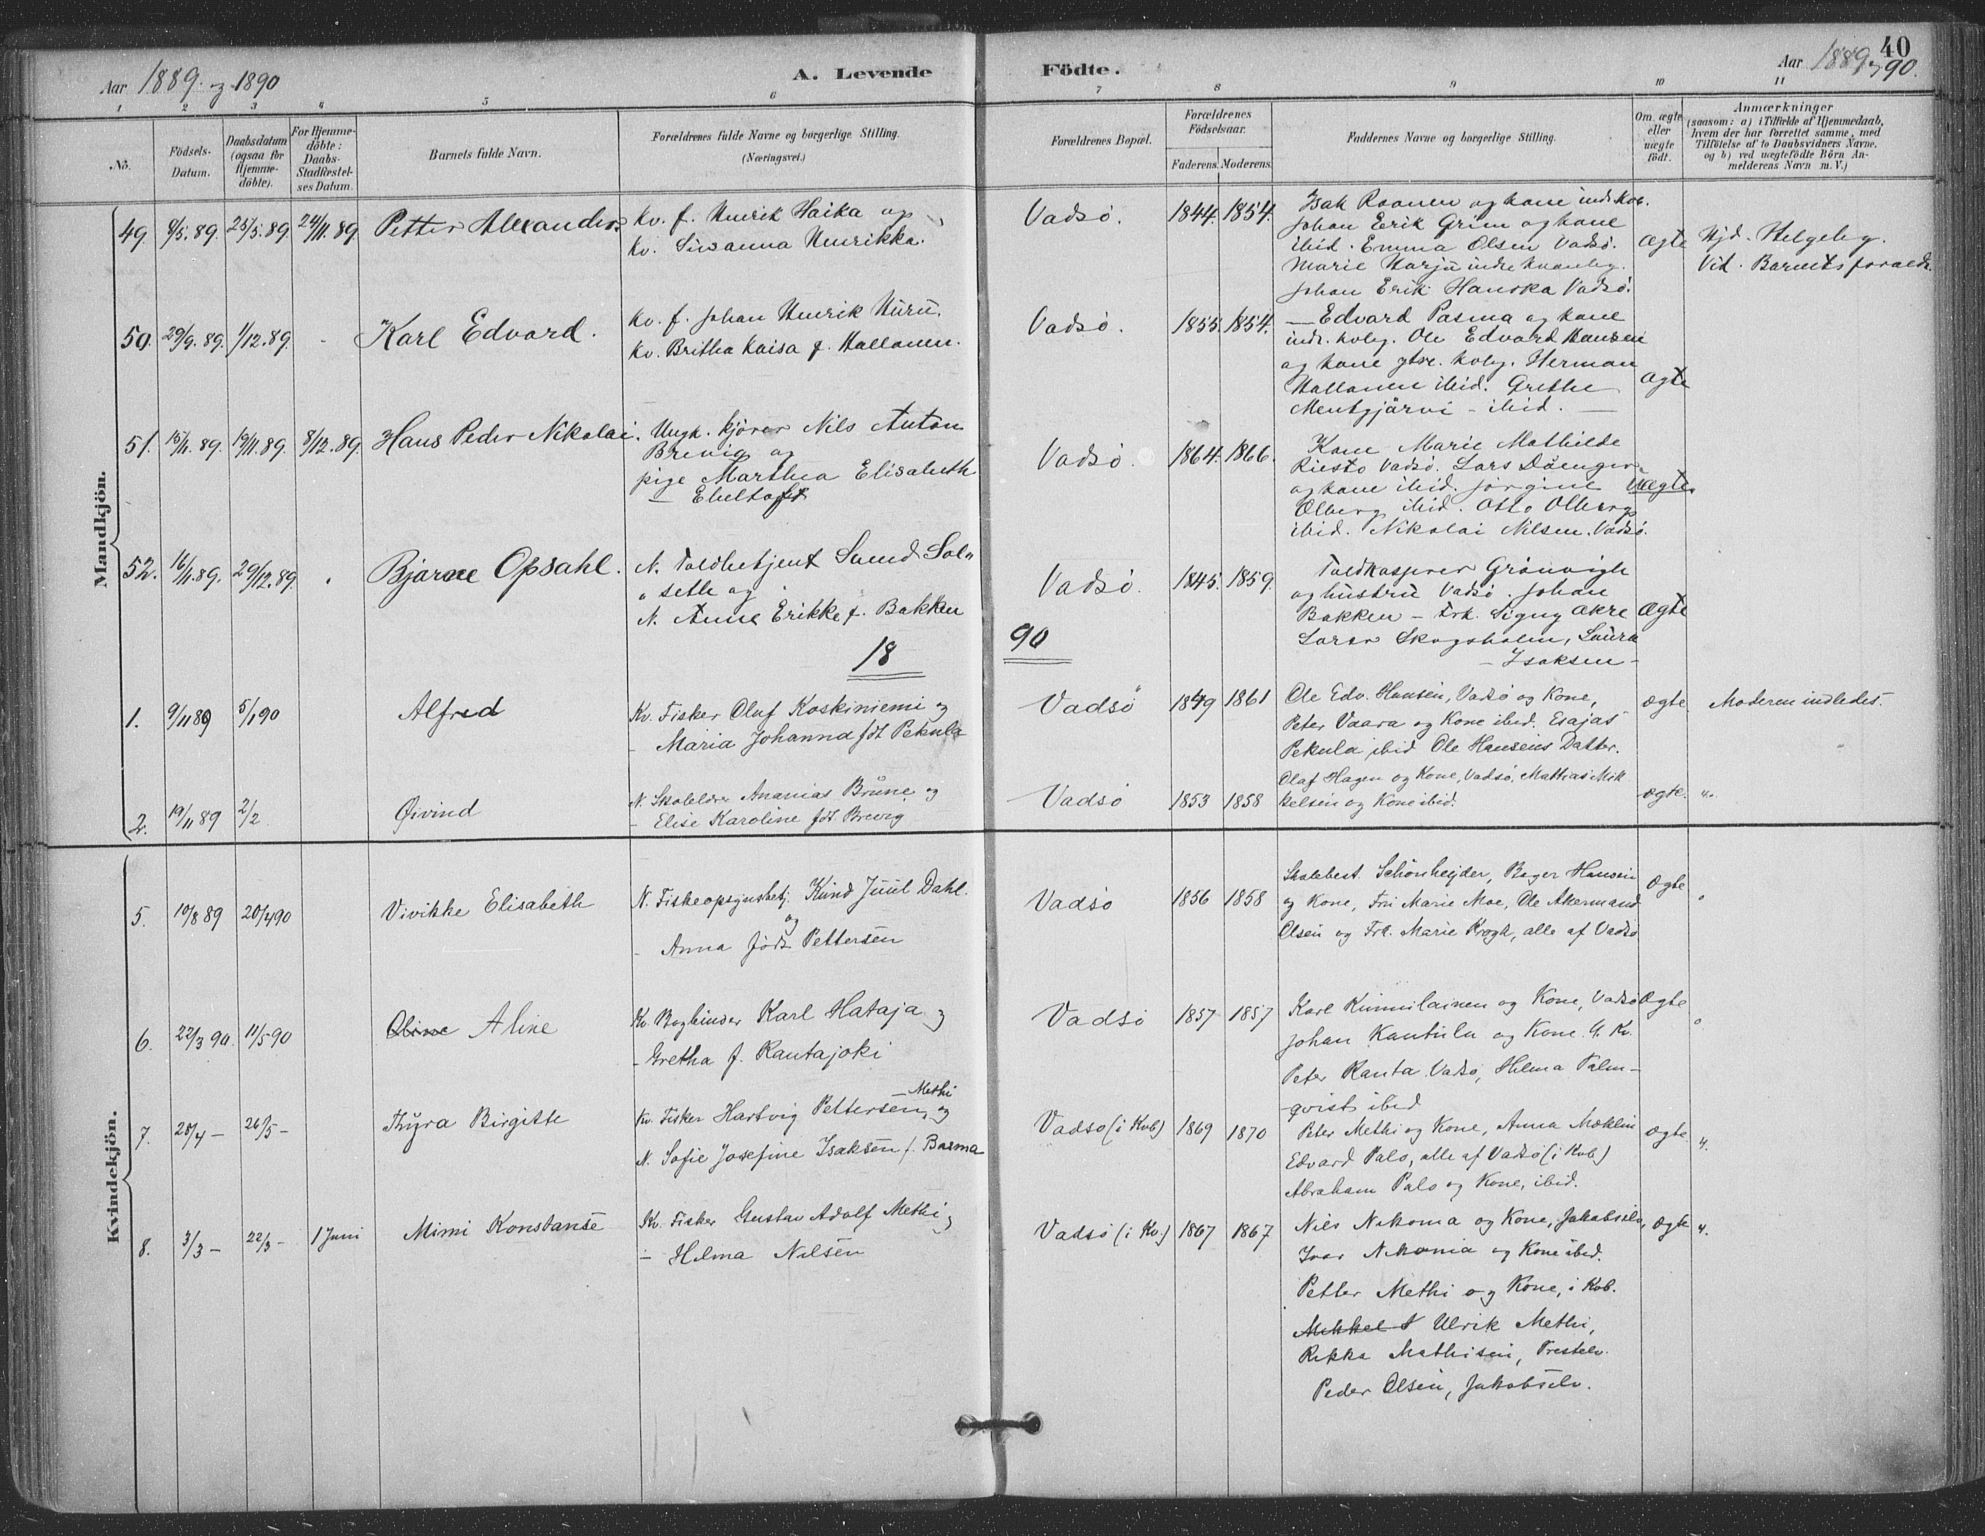 Aar 1889 og 1890
A. Levende Födte.
Aar 1889 og 90.
40
1 2 3 4 5 6 7 8 9 10 11
No.
Födsels-Datum.
Daabsdatum (ogsaa för Hjemme-döbte).
For Hjemme-döbte: Daabs-Stadfæstel-ses Datum.
Barnets fulde Navn.
Forældrenes fulde Navne og borgerlige Stilling.
(Næringsvei.)
Forældrenes Bopæl.
Forældrenes Födselsaar.
Faderens. Moderens.
Faddernes Navne og borgerlige Stilling.
Om ægte eller uægte födt.
Anmærkninger
(saasom: a) i Tilfælde af Hjemmedaab,
hvem der har forrettet samme, med
Tilföielse af to Daabsvidners Navne,
og b) ved uægtefödte Börn An-
melderens Navn m. V.)
Mandkjön.
49. 9/5.89. 25/5.89 24/11.89 Petter Alexander.
Kv. f. Henrik Haika og
Kv. Susanna Henrikka.
Vadsø. 1844. 1854.
Isak Raanen og kone indr. kvb.
Johan Erik Grim og kone
ibid. Emma Olsen Vadsø.
Marie Harju indre kvænby.
Johan Erik Hanska Vadsø.
Ægte
Hjd. Helgeby.
Vid. Barnets forældr.
50. 29/9.89. 1/12.89. - Karl Edvard.
Kv. f. Johan Henrik Huru.
Kv. Britha Kaisa f. Hallonen.
Vadsø. 1855. 1854.
— Edvard Pasma og kone
indr. kvbg. Ole Edvard Hansen
og kone ytre. kvbg. Herman
Hallonen ibid. Grethe
Mentyjärvi - ibid. —
Ægte
51. 15/11.89. 19/11.89. 8/12.89. Hans Peder Nikolai.
Ungk. kjører Nils Anton
Brevig og
pige Marthea Elisabeth
— Ebeltoft
Vadsø. 1864. 1866.
Kone Marie Mathilde
Riesto Vadsø. Lars
og kone ibid. Jørgine
Olberg ibid. Otto Olberg
ibid. Nikolai Nilsen. Vadsø.
Uægte.
52. 16/11.89. 29/12.89. Bjarne Opsahl.
N. Toldbetjent Svend Sol-
seth og
N. Anne Erikke f. Bakken
Vadsø. 1845. 1859.
Toldkasserer Grønvigh
og hustru Vadsø. Johan
Bakken - Frk. Signy Akre
Lærer Skogsholm, Laura
- Isaksen -
Ægte
18 90
1. 9/11 89 5/1 90 Alfred
Kv. Fisker Oluf Koskiniemi og
- Maria Johanna født Pekula
Vadsø 1849 1861
Ole Edv. Hansen, Vadsø og Kone,
Peter Vaara og Kone ibid. Esajas
Pekula ibid Ole Hansens Datter.
ægte. Moderen indledes.
2. 19/11 89 2/2 Øivind
N. Skolelærer Ananias Brune og
- Elise Karoline født Brevig
Vadsø 1853 1858
Olaf Hagen og Kone, Vadsø, Mattias Mik
kelsen og Kone ibid.
ægte. "
Kvindekjön.
5. 10/8 89 20/4 90 Vivikke Elisabeth
N. Fiskeopsynsbetj. Knud Juul Dahl.
og
- Anna født Pettersen
Vadsø 1856 1858
Skolebest. Schönheyder, Birger Hansen
og Kone, Fru Marie Moe, Ole Akermand
Olsen og Frk. Marie Krogh, alle af Vadsø
Ægte "
6. 22/3 90. 11/5 90 Oline Aline
Kv. Bogbinder Karl Hataja og
- Gretha f. Rantajoki
Vadsø 1857 1857
Karl Kinnulainen og Kone, Vadsø
Johan Kantula og Kone Y. Kv.
Peter Ranta Vadsø, Helma Palm-
qvist ibid
Ægte "
7. 28/4 - 26/5 - Thyra Birgitte
Kv. Fisker Hartvig Pettersen - Methi og
N. Sofie Josefine Isaksen f. Basma
Vadsø (i Kvb) 1869 1870
Peter Methi og Kone, Anna Mæklin
Edvard Palo, alle af Vadsø (i Kvb)
Abraham Palo og Kone, ibid.
Ægte "
8. 3/3 - 22/3 - 1 Juni Mimi Konstanse
Kv. Fisker Gustav Adolf Methi og
- Helma Nilsen
Vadsø (i Kv.) 1867 1867
Nils Nikoma og Kone, Jakobselv,
Ivar Nikoma og Kone ibid.
Petter Methi og Kone, i Kvb.
Mikkel Ulrik Methi,
Rikka Mathisen, Prestelv.
Peder Olsen, Jakobselv.
Ægte "